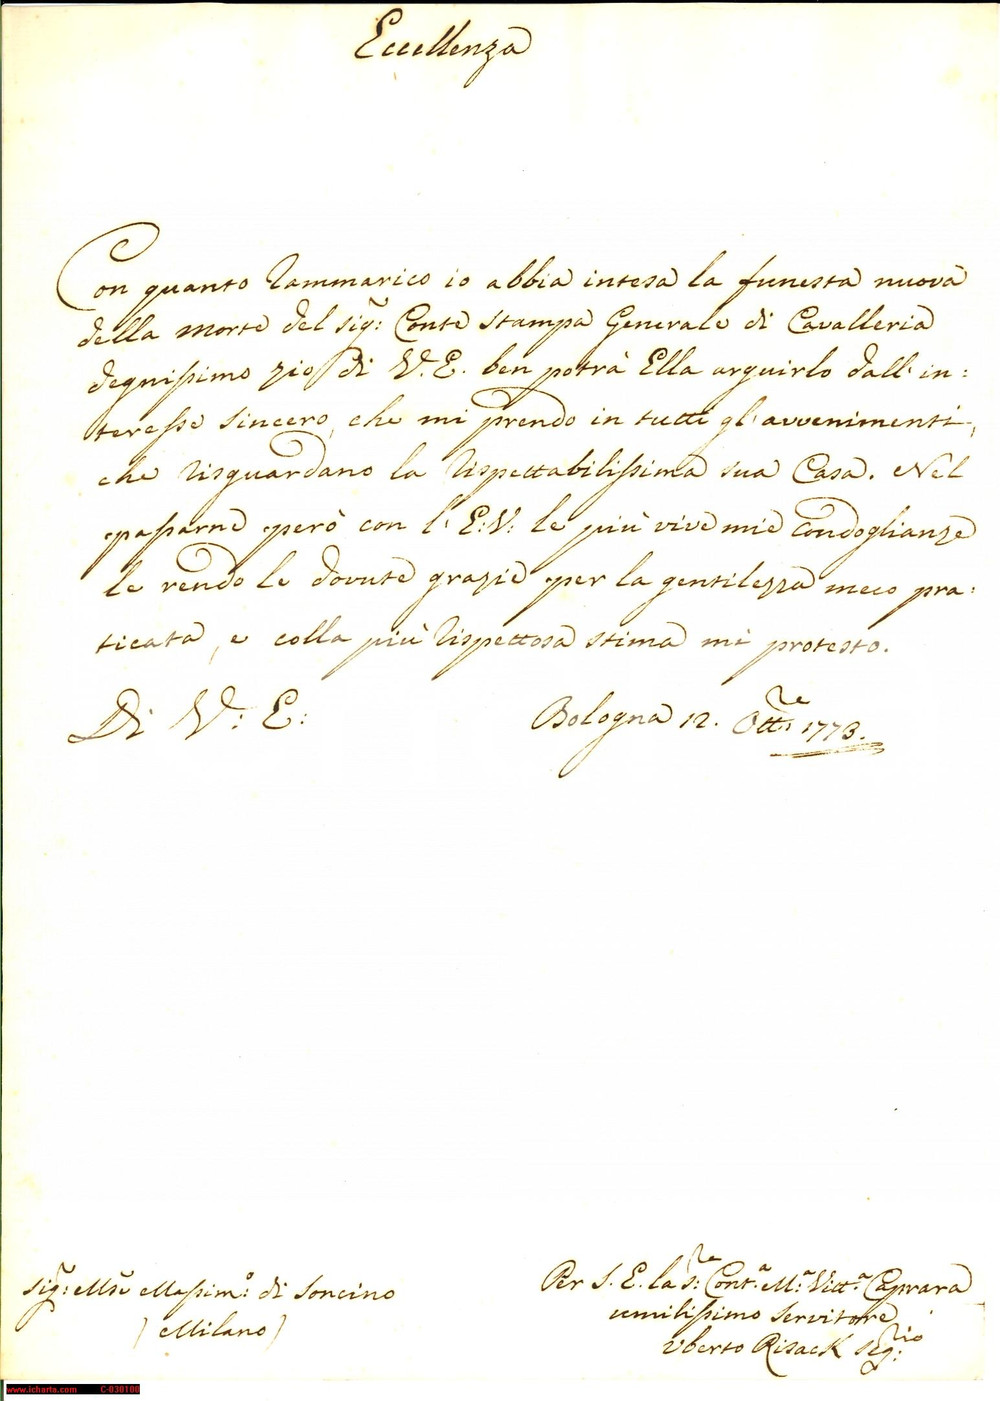 Eccellenza
Con quanto rammarico io abbia intesa la funesta nuova
della morte del Sig.r: Conte Stampa Generale di Cavalleria
degnissimo zio di V. E. ben potrà Ella arguirlo dall' in:
teresse sincero, che mi prendo in tutti gl'avvenimenti,
che risguardano la rispettabilissima sua Casa. Nel
passarne però con l' E: V: le più vive mie condoglianze
le rendo le dovute grazie per la gentilezza meco pra:
ticata, e colla più rispettosa stima mi protesto.
Di V: E:
Bologna 12. Ott:re 1773.
Sig.r: M.se Massim.o: di Soncino
(Milano)
Per S. E. la S:ra Cont.a M.a Vitt.a Caprara
umilissimo servitore
Uberto Risack Seg:rio
www.icharta.com C-030100